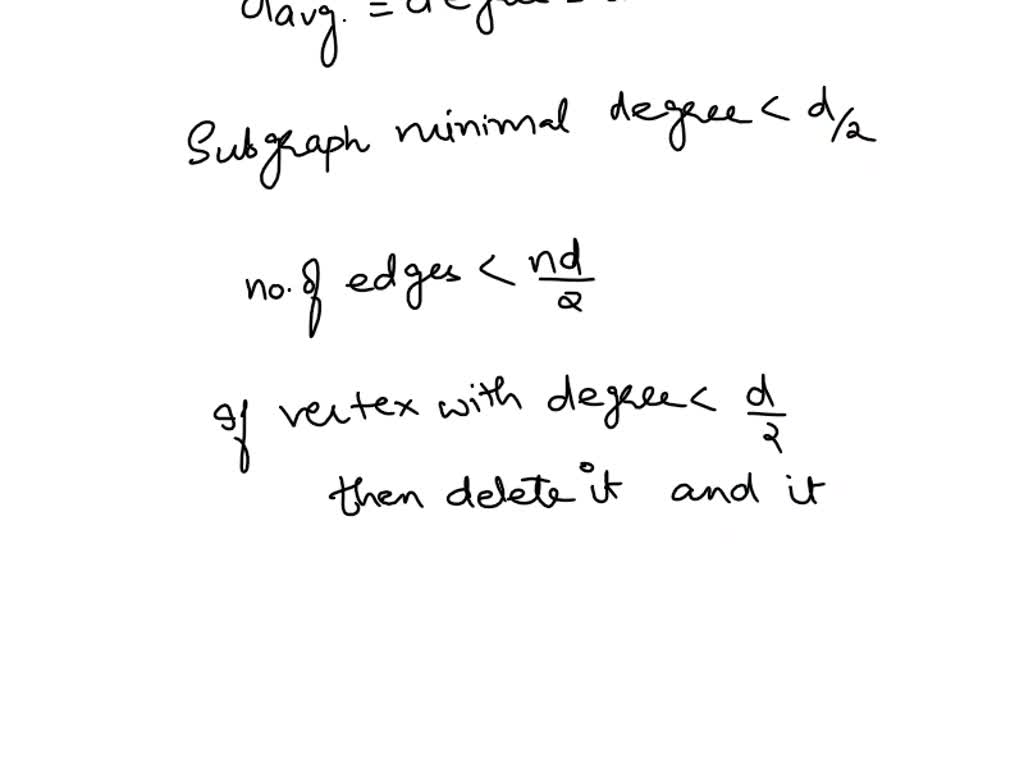 davg. = deg
Subgraph minimal degree < d/2
no. of edges < nd/2
If vertex with degree < d/2
then delete it and it